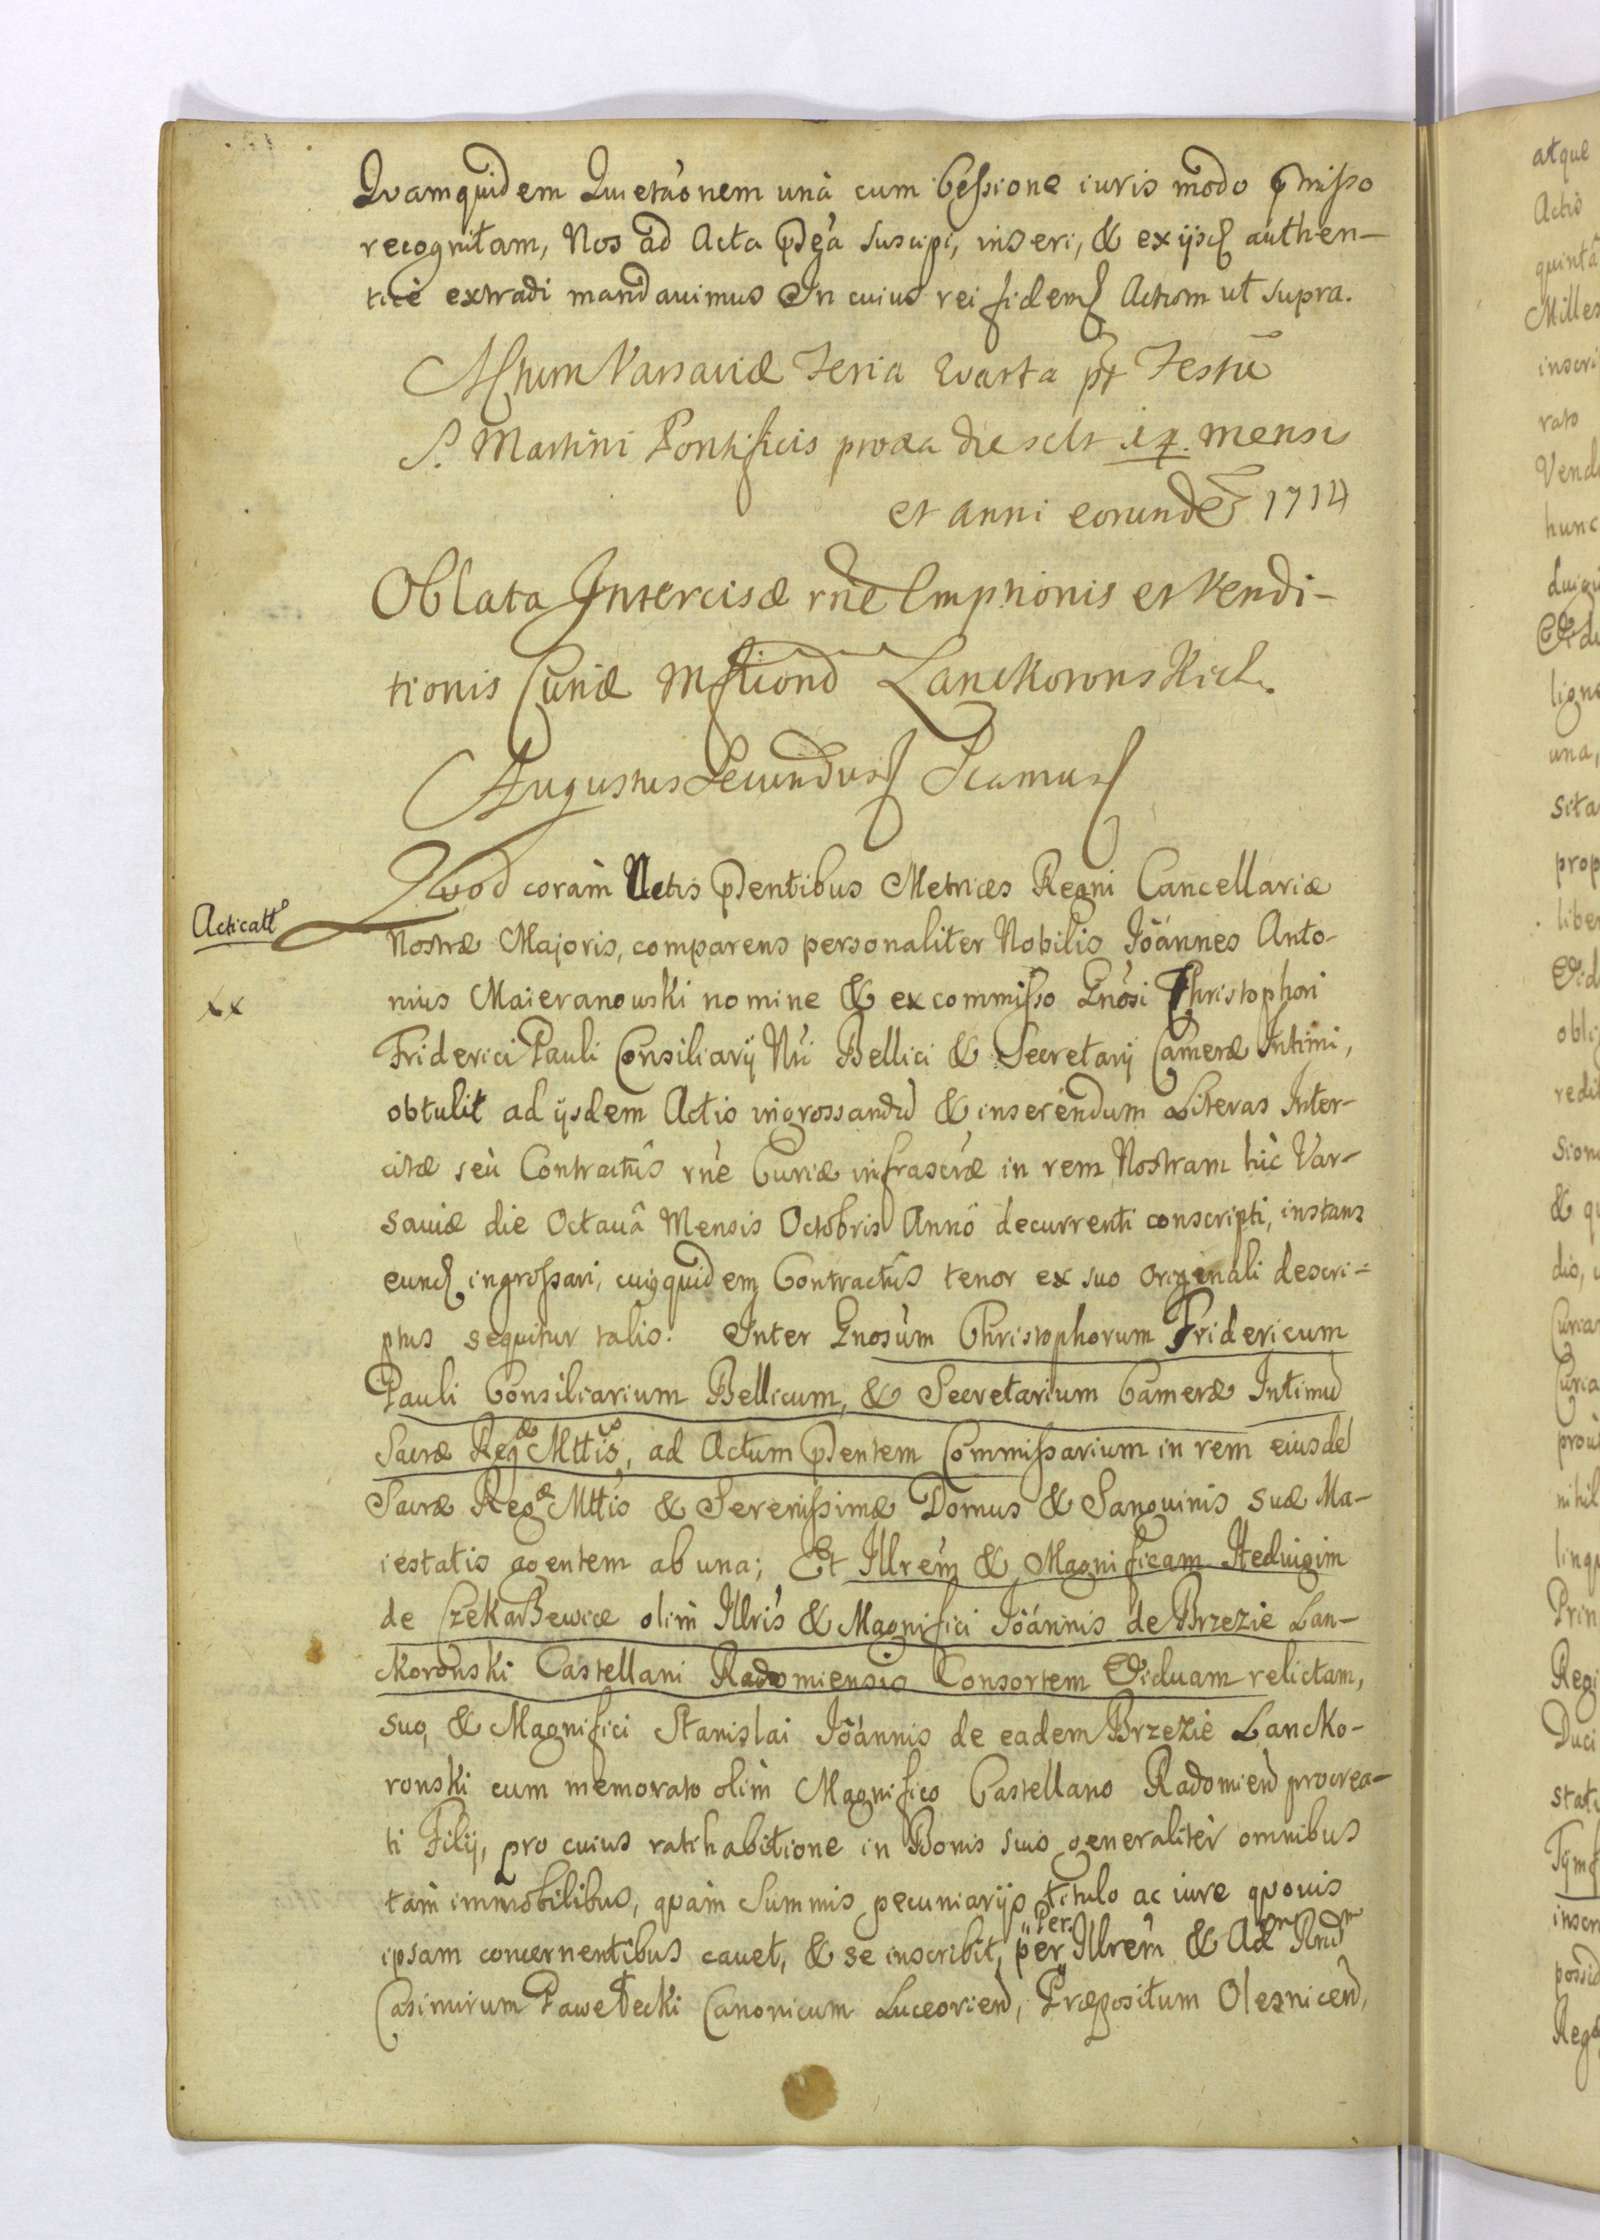 Qvamquidem Quietaõnem unà cum Cessione iuris modo pmisso
recognitam, Nos ad Acta pdẽa suscipi, inseri, & ex ijsd authen-
ticè extradi mandavimus In cuius rei fidem Actum ut supra.
Actum Varsaviæ Feria Qvarta pt Festũ
S. Martini Pontificis proxa die sclt 14. mensis
et anni eorundẽ 1714
Oblata Intercisæ rñe Emptionis et Vendi-
tionis Curiæ Mficorũ Lanckoronskich.
Augustus Secundus Rex
Qvod coràm Actis pdentibus Metrices Regni Cancellariæ
Acticatt
Nostræ Majoris, comparens personaliter Nobilis Joánnes Anto-
xx
nius Maieranowski nomine & ex commisso Gnõsi Christophori
Friderici Pauli Consiliarij Nri Bellici & Secretarij Cameræ Intimi,
obtulit ad ijsdem Actis ingrossandũ & inserendum Literas Inter-
cisæ seù Contractûs rñe Curiæ infrascrtæ in rem Nostram hìc Var-
saviæ die Octavâ Mensis Octobris Annô decurrenti conscripti, instans
eund ingrossari, cuius quidem Contractûs tenor ex suo originali descri-
ptus sequitur talis. Inter Gnosùm Christophorum Fridericum
Pauli Consiliarium Bellicum, & Secretarium Cameræ Intimũ
Sacræ Regæ Mttis, ad Actum pdentem Commissarium in rem eiusdẽ
Sacræ Regæ Mttis & Serenissimæ Domus & Sanguinis suæ Ma-
iestatis agentem ab una; Et Illrẽm & Magnificam Hedvigim
de Czekarzewice olim Illris & Magnifici Joánnis de Brzezie Lan-
ckoronski Castellani Radomiensis Consortem Viduam relictam,
suo, & Magnifici Stanislai Joánnis de eadem Brzezie Lancko-
ronski cum memorato olim Magnifico Castellano Radomien procrea-
ti Filij, pro cuius ratihabitione in Bonis suis generalitèr omnibus
tàm immobilibus, quàm Summis pecuniarijs titulo ac iure quovis
ipsam concernentibus cavet, & se inscribit, per Per Illrẽm & Adm Rndm
Casimirum Pawełecki Canonicum Luceorien, Præpositum Olesnicen,
atque
Actis
quintâ
Milles
inscri
rato
Vendi
hunc
ligne
una,
sita
prop
liber
Vid
obli
redit
sion
& q
dio,
Curia
Curia
prou
nihil
lingu
Prin
Regi
Duci
stati
Tymf
inscr
possid
Rega